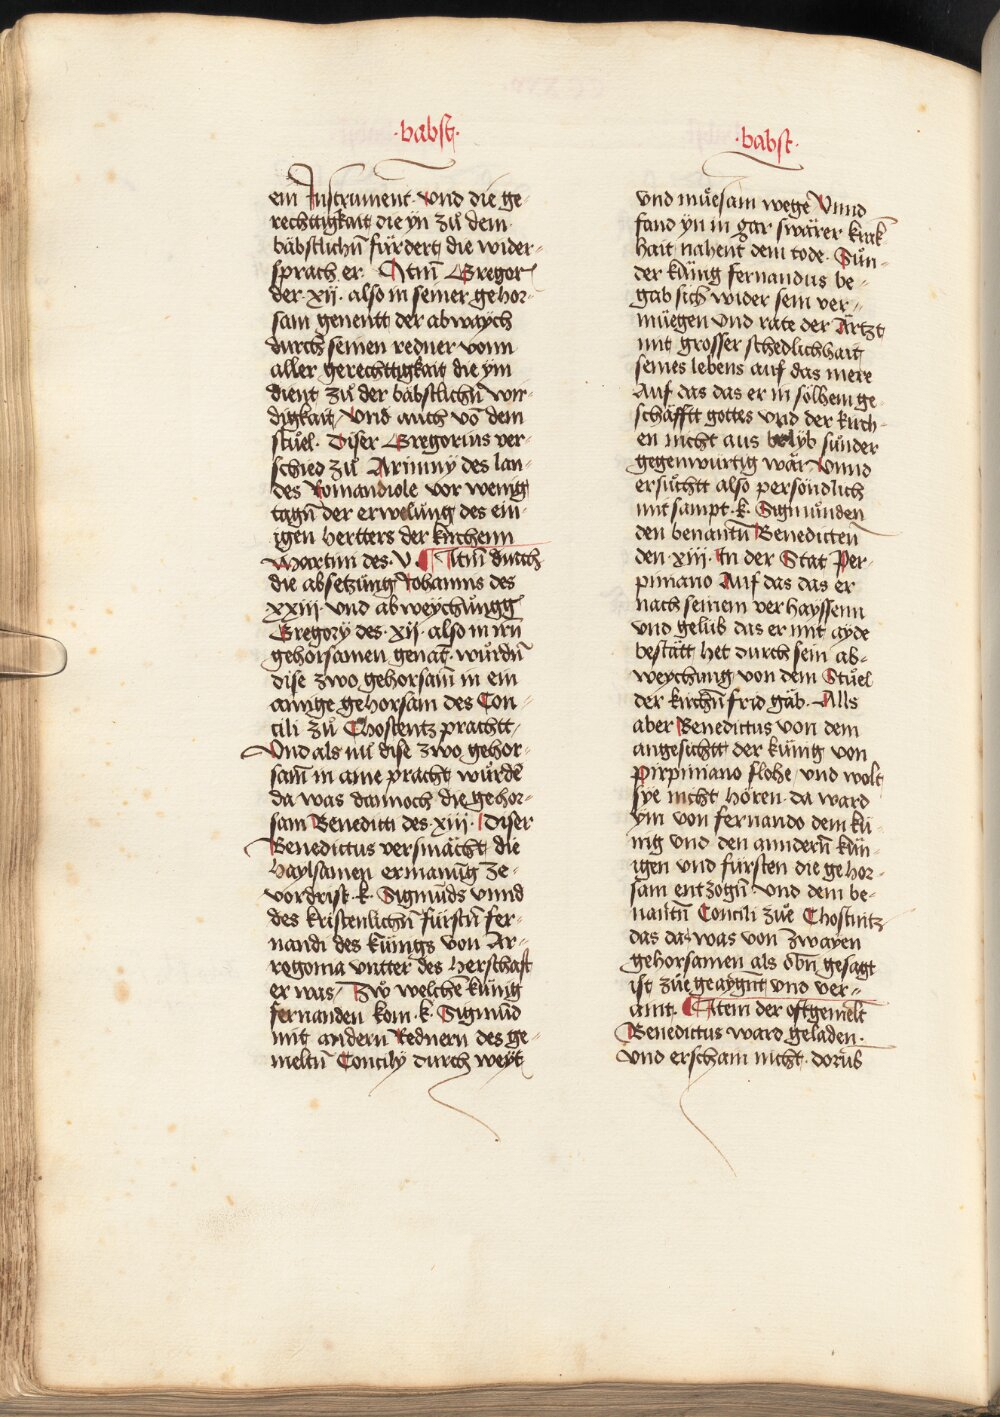 ·babst·
ein Instrument· Vnd die ge-
rechttigkait die yn zuͦ dem
bäbstlichn̄ fürdert die wider-
sprach er· Itm̄ Gregor
der·xij· also in seiner gehor-
sam genentt der abwaych
durch seinen redner vonn
aller gerechttigkait die ym
dient zuͦ der bäbstlichn̄ wir-
digkait/ Vnd auch vō dem
stuͦel· Diser Gregorius ver-
schied zuͦ Arimny des lan-
des Romandiole vor wenig
tagn̄ der erwelung des ein-
igen hertters der kirchenn
Martin des·V· ¶ Itm̄ durch
die absetzung Johanns des
xxiij· vnd abweychungg
Gregorÿ des·xij· also in irn̄
gehorsamen genāt· wuͦrdn̄
dise zwo gehorsam̄ in ein
ainige gehorsam des Con-
cili zuͦ Chostentz prachtt·
Vnd als nu dise zwo gehor-
sam̄ in aine pracht wuͦrdē
da was dannoch die gehor-
sam Benedicti des·xiij· Diser
Benedictus versmächt die
haylsamen ermanūg ze-
vordrist·k· Sigmūds vnnd
des kristenlichn̄ fürstn̄ fer-
nandi des küngs von Ar-
rogonia vntter des herschaft
er was/ Zw welchē küng
fernanden kom·k· Sigmūd
mit andern Rednern des ge-
meltn̄ Concilÿ durch weyt
·babst·
vnd müesam wege Vnnd
fand yn in gar swärer krāk-
hait nahent dem tode· Sun-
der küng fernandus be-
gab sich wider sein ver-
müegen vnd räte der Ärtzt
mit grosser schedlichhait
seines lebens auf das mere
Auf das das er in sölhem ge-
schäfft gottes vnd der kirch-
en nicht aus belyb sunder
gegenwürtig wär Vnnd
ersuͦchtt also persöndlich
mit sampt·k· Sigmunden
den benantn̄ Benedicten
den·xiij· In der Stat Per-
piniano Auf das das er
nach seinem verhayssenn
vnd gelüb das er mit ayde
bestätt het durch sein ab-
weychung von dem Stuͦel
der kirchn̄ frid gäb· Alls
aber Benedictus von dem
angesichtt der küng von
Pirpiniano flohe vnd wolt
sye nicht hören· da ward
ym von fernando dem kü-
nig vnd den anndern̄ kün-
igen vnd fürsten die gehor-
sam entzogn̄ vnd dem be-
nantn̄ Concili zue Chostnitz
das da was von zwayen
gehorsamen als obn̄ gesagt
ist zue geaygnt vnd ver-
aint· ¶ Item der oftgemelt
Benedictus ward geladen·
Vnd erscham nicht· dorūb